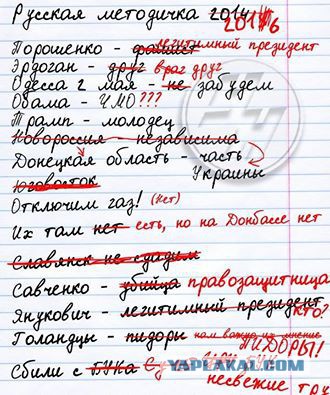 Русская методичка 2014
2016
Порошенко - фашист легитимный президент
Эрдоган - друг враг друг
Одесса 2 мая - не забудем
Обама - ЧМО???
Трамп - молодец
Новороссия - независима
Донецкая область - часть
Юговосток Украины
Отключим газ! (Нет)
Их там нет есть, но на Донбассе нет
Славянск не сдадим
Савченко - убийца правозащитница
Янукович - легитимный президент КТО?
Голандцы - пидоры нам важно их мнение
ПИДОРЫ!
Сбили с БУКа
несвежие
YAPLAKAL.COM